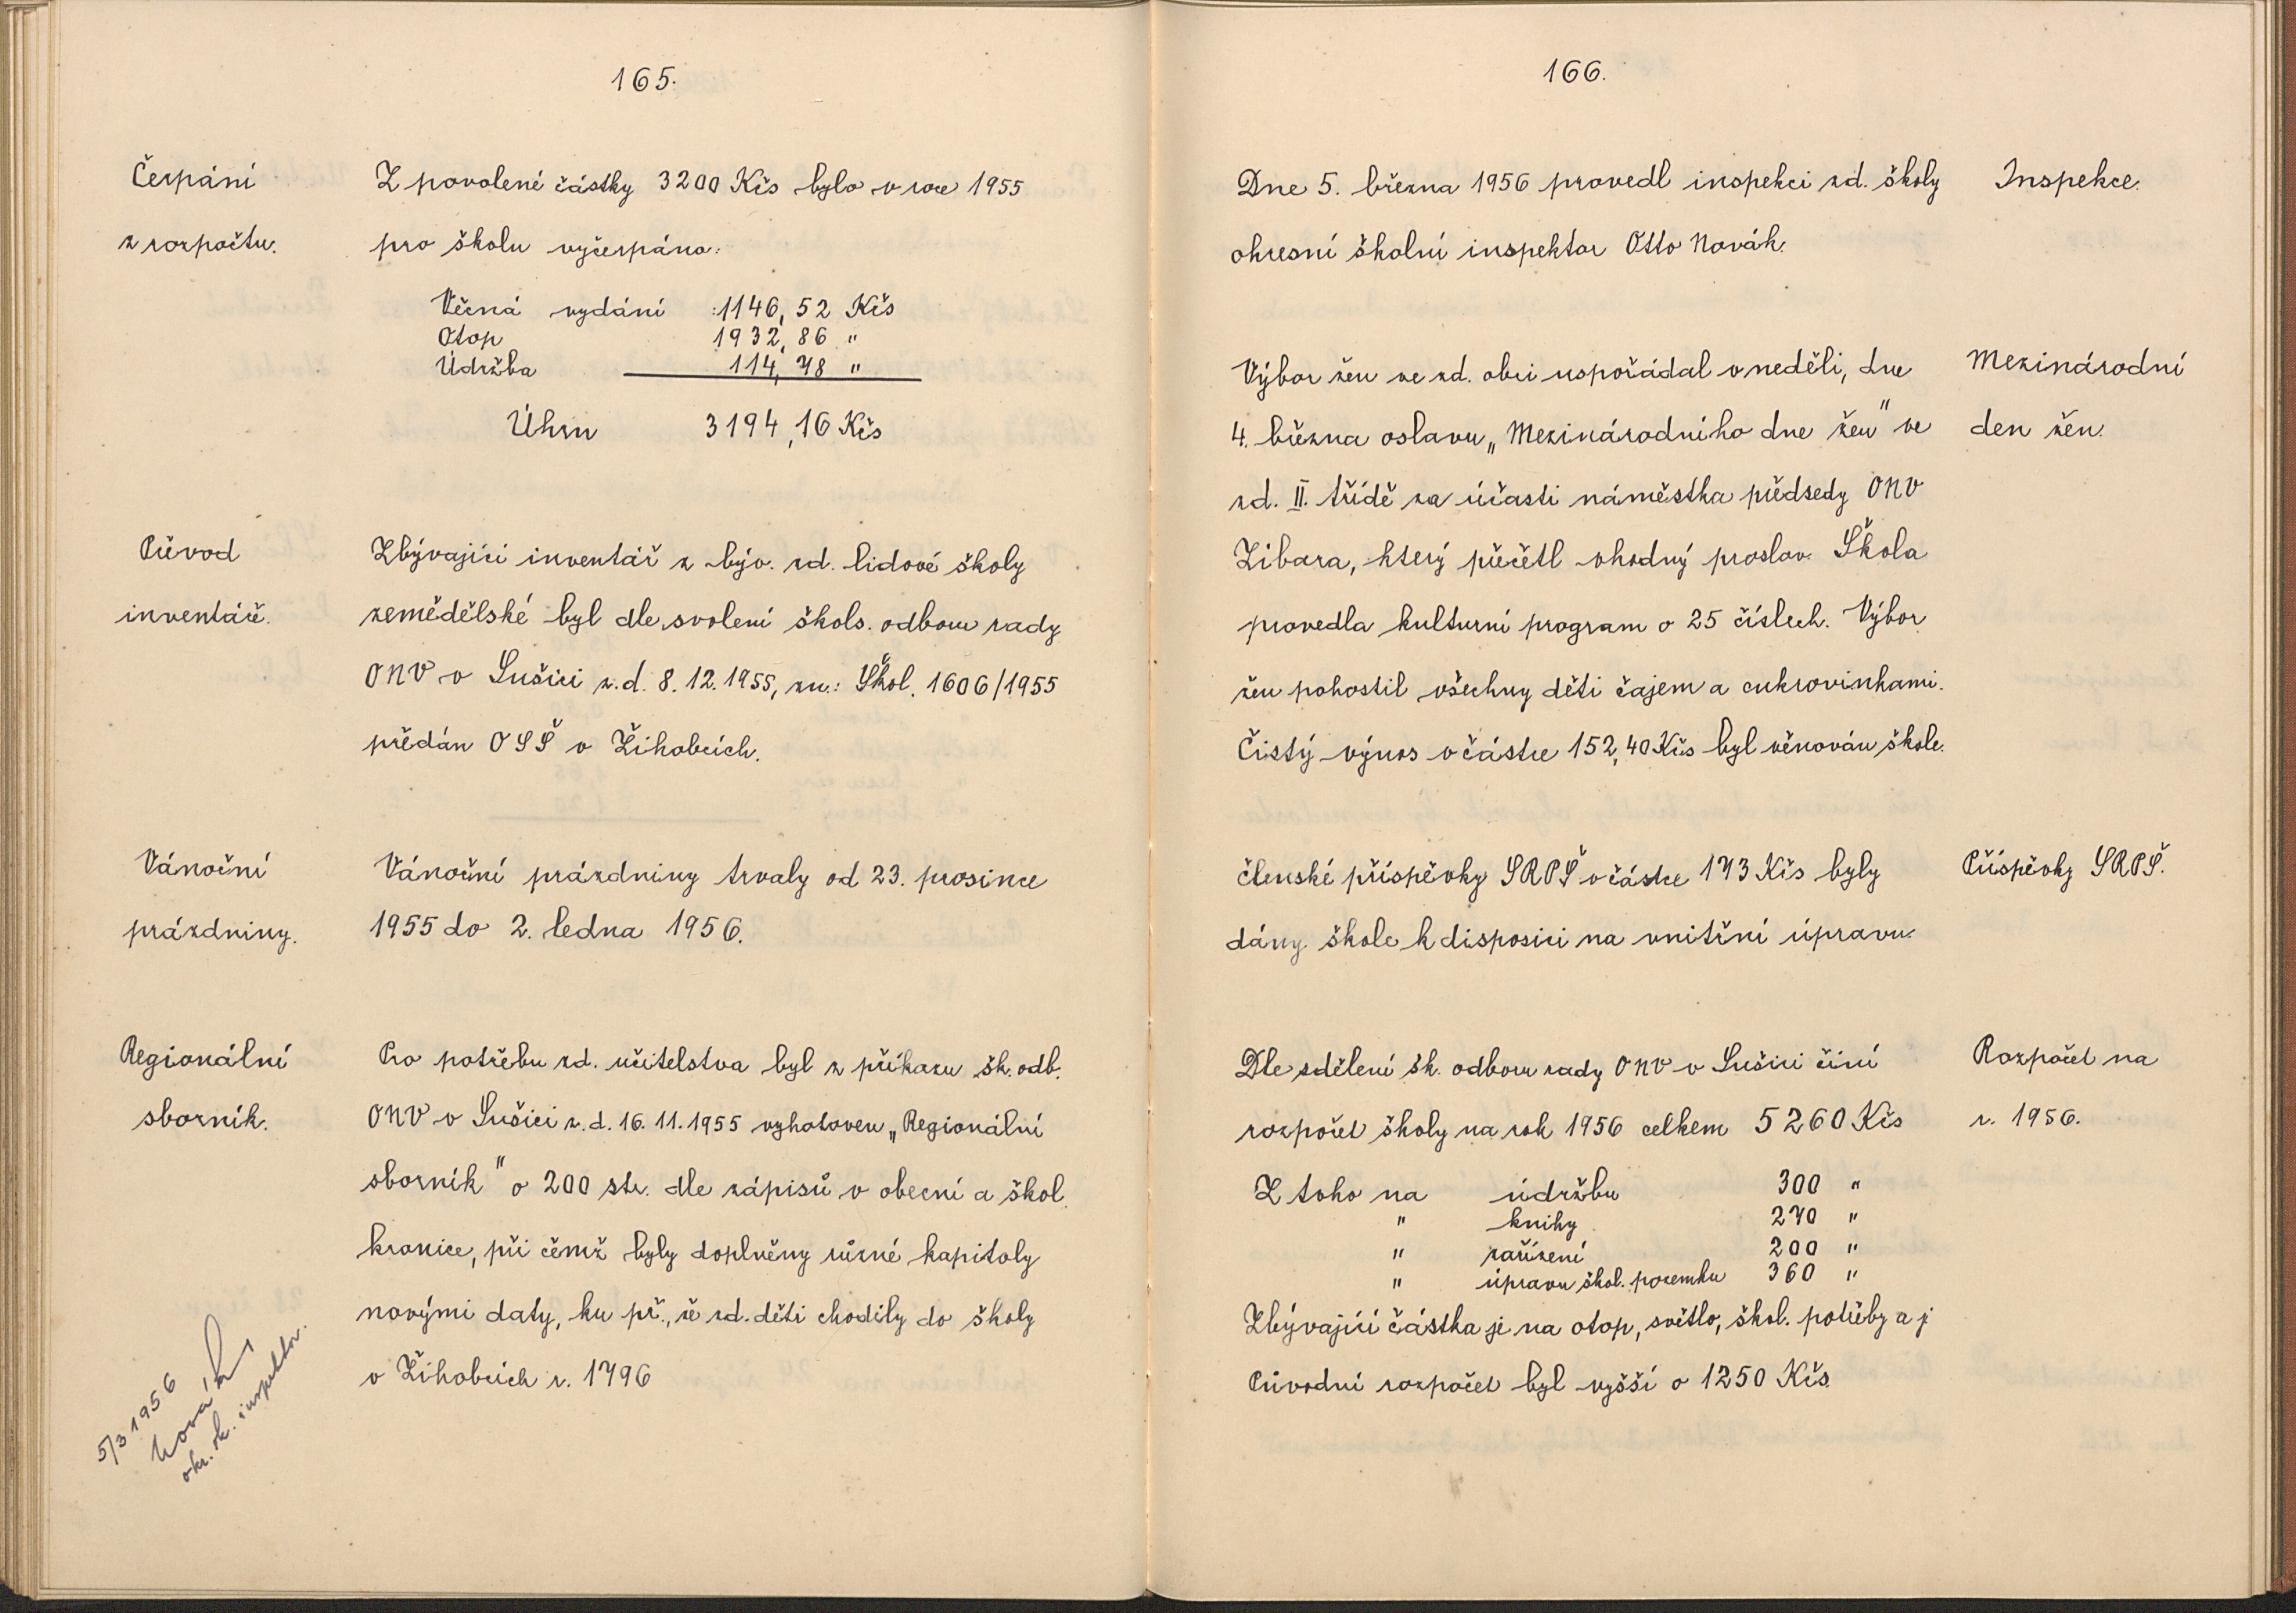 165.
Čerpání
z rozpočtu.
Z povolené částky 3200 Kčs bylo v roce 1955
pro školu vyčerpáno:
Věcná vydání :1146,52 Kčs
Otop 1932,86 "
Údržba 114,78 "
Úhrn 3194,16 Kčs
Převod
inventáře.
Zbývající inventář z býv. zd. lidové školy
zemědělské byl dle svolení škols. odboru rady
ONV v Sušici z.d. 8.12.1955, zn.: Škol. 1606/1955
předán OSŠ v Žihobcích.
Vánoční
prázdniny.
Vánoční prázdniny trvaly od 23. prosince
1955 do 2. ledna 1956.
Regionální
sborník.
Pro potřebu zd. učitelstva byl z příkazu šk. odb.
ONV v Sušici z.d. 16.11.1955 vyhotoven „Regionální
sborník" o 200 str. dle zápisů v obecní a škol.
kronice, při čemž byly doplněny různé kapitoly
novými daty, ku př., že zd. děti chodily do školy
v Žihobcích r. 1796
5/3 1956
Novák
okr. šk. inspektor.
166.
Dne 5. března 1956 provedl inspekci zd. školy
okresní školní inspektor Otto Novák.
Inspekce.
Výbor žen ve zd. obci uspořádal v neděli, dne
4. března oslavu „Mezinárodního dne žen" ve
zd. II. třídě za účasti náměstka předsedy ONV
Zíbara, který přečetl vhodný proslov. Škola
provedla kulturní program o 25 číslech. Výbor
žen pohostil všechny děti čajem a cukrovinkami.
Čistý výnos v částce 152,40 Kčs byl věnován škole.
Mezinárodní
den žen.
členské příspěvky SRPŠ v částce 173 Kčs byly
dány škole k disposici na vnitřní úpravu.
Příspěvky SRPŠ.
Dle sdělení šk. odboru rady ONV v Sušici činí
rozpočet školy na rok 1956 celkem 5260 Kčs
Rozpočet na
r. 1956.
Z toho na údržbu 300 "
" knihy 270 "
" zařízení 200 "
" úpravu škol. pozemku 360 "
Zbývající částka je na otop, světlo, škol. potřeby a j.
Původní rozpočet byl vyšší o 1250 Kčs.